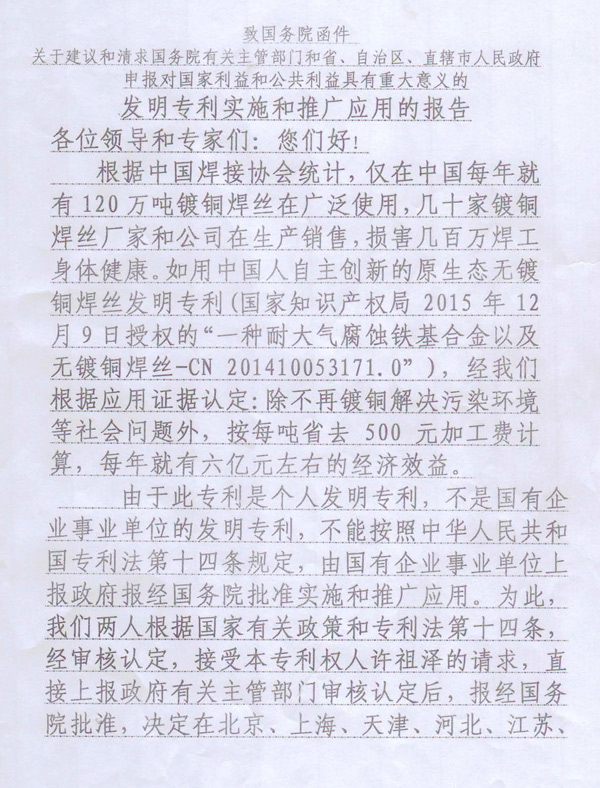 致国务院函件
关于建议和清求国务院有关主管部门和省、自治区、直辖市人民政府
申报对国家利益和公共利益具有重大意义的
发明专利实施和推广应用的报告
各位领导和专家们：您们好！
根据中国焊接协会统计，仅在中国每年就
有120万吨镀铜焊丝在广泛使用，几十家镀铜
焊丝厂家和公司在生产销售，损害几百万焊工
身体健康。如用中国人自主创新的原生态无镀
铜焊丝发明专利（国家知识产权局 2015 年 12
月 9 日授权的“一种耐大气腐蚀铁基合金以及
无镀铜焊丝-CN 201410053171.0”），经我们
根据应用证据认定：除不再镀铜解决污染环境
等社会问题外，按每吨省去 500 元加工费计
算，每年就有六亿元左右的经济效益。
由于此专利是个人发明专利，不是国有企
业事业单位的发明专利，不能按照中华人民共和
国专利法第十四条规定，由国有企业事业单位上
报政府报经国务院批准实施和推广应用。为此，
我们两人根据国家有关政策和专利法第十四条，
经审核认定，接受本专利权人许祖泽的请求，直
接上报政府有关主管部门审核认定后，报经国务
院批准，决定在北京、上海、天津、河北、江苏、